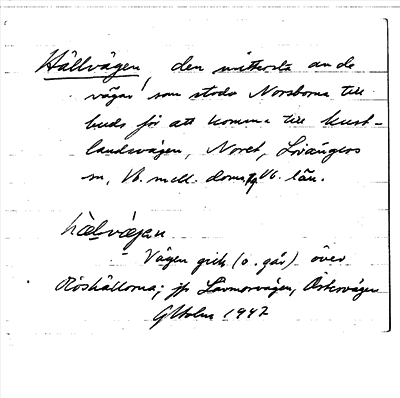 Hällvägen, den mittersta av de
vägar som stodo Norsborna till
buds för att komma till kust-
landsvägen, Noret, Lövångers
sn, Vb. mell. doms. Vb. län.
hä̀lvägan
- Vägen gick (o. går) över
Röshällorna; jfr Lavmorvägen, Östervägen
GHolm 1942